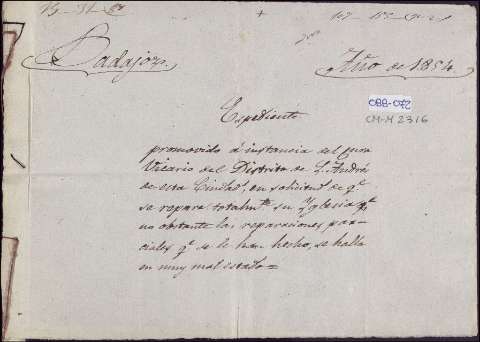 Badajoz.
Año de 1854.
088-072
CM-M 2316
Expediente
promovido á instancia del Cura
Vicario del Distrito de S. Andrés
de esta Ciudad, en solicitud de qe
se repare totalmte su Yglesia pr
no obstante las reparaciones par-
ciales qe se le han hecho, se halla
en muy mal estado=